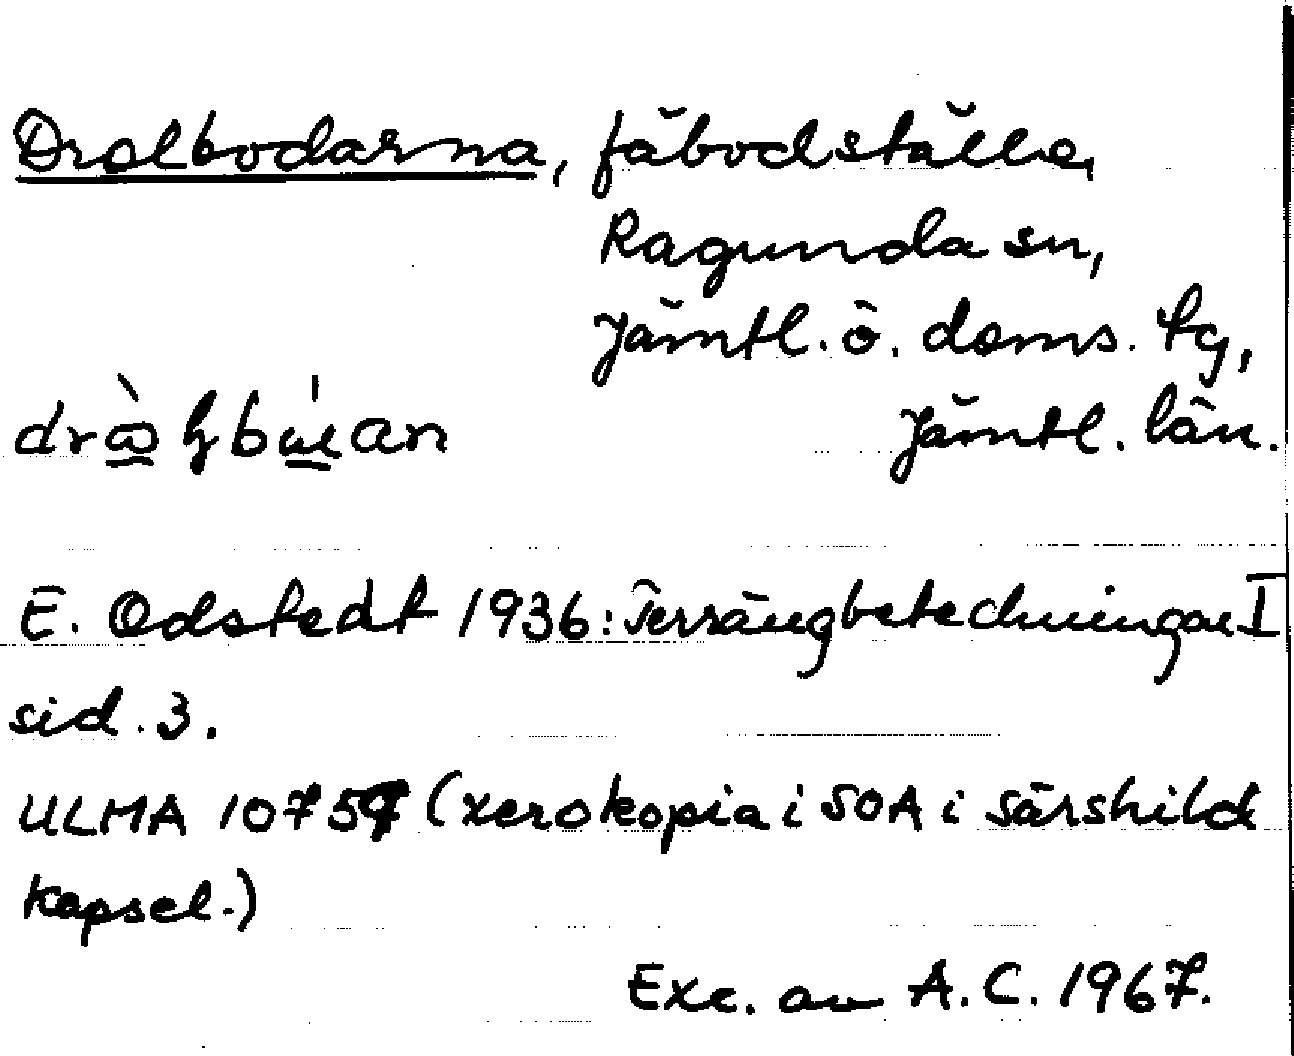 Dralbodarna, fäbodställe,
Ragunda sn,
Jämtl. ö. doms. tg,
Jämtl. län.
E. Odstedt 1936: Terrängbeteckningar I
sid. 3.
ULMA 10754 (xerokopia i SOA i särskild
kapsel.)
Exc. av A.C. 1967.